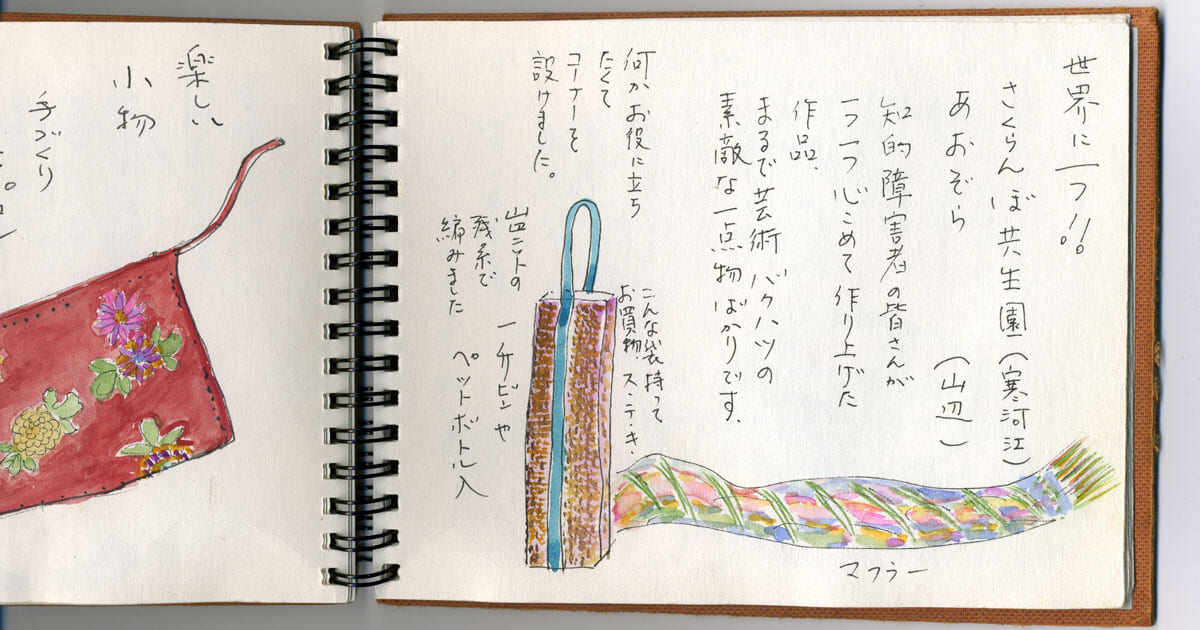 世界に一つ!!
さくらんぼ共生園(寒河江)
あおぞら(山辺)
知的障害者の皆さんが
一つ一つ心こめて作り上げた
作品、
まるで芸術バクハツの
素敵な一点物ばかりです、
何かお役に立ち
たくて
コーナーを
設けました。
こんな袋持って
お買物、ス・テ・キ、
残糸で
編みました
一升ビンや
ペットボトル入
マフラー
楽しい
小物
手づくり